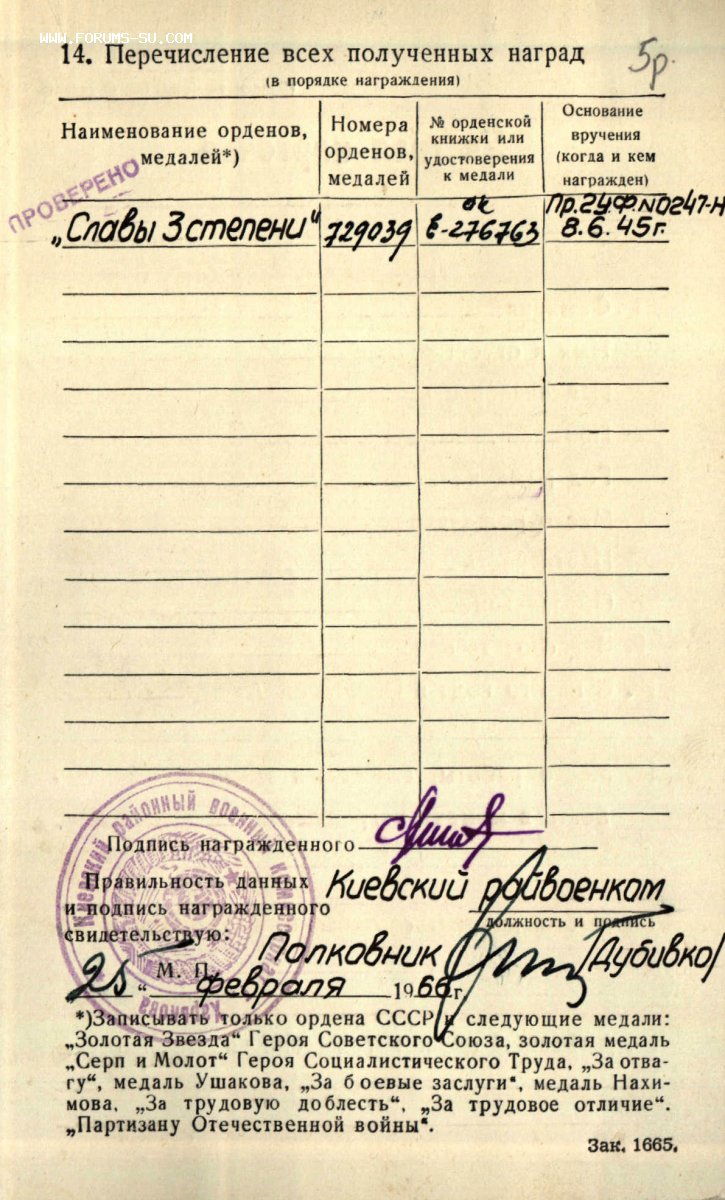 www.forums-su.com
14. Перечисление всех полученных наград
5р.
(в порядке награждения)
Наименование орденов,
медалей*)
Номера
орденов,
медалей
№ орденской
книжки или
удостоверения
к медали
Основание
вручения
(когда и кем
награжден)
ПРОВЕРЕНО
„Славы 3 степени"
729039
ок
Е-276763
Пр. 24 Ф. N0247-Н
8.6.45г.
Подпись награжденного
Правильность данных
и подпись награжденного
свидетельствую:
Киевский райвоенком
должность и подпись
Полковник
/Дубивко/
М. П.
25 " февраля 1966 г.
Киевский районный военный
Харькова
*)Записывать только ордена СССР и следующие медали:
„Золотая Звезда" Героя Советского Союза, золотая медаль
„Серп и Молот" Героя Социалистического Труда, „За отва-
гу", медаль Ушакова, „За боевые заслуги", медаль Нахи-
мова, „За трудовую доблесть", „За трудовое отличие".
„Партизану Отечественной войны".
Зак. 1665.